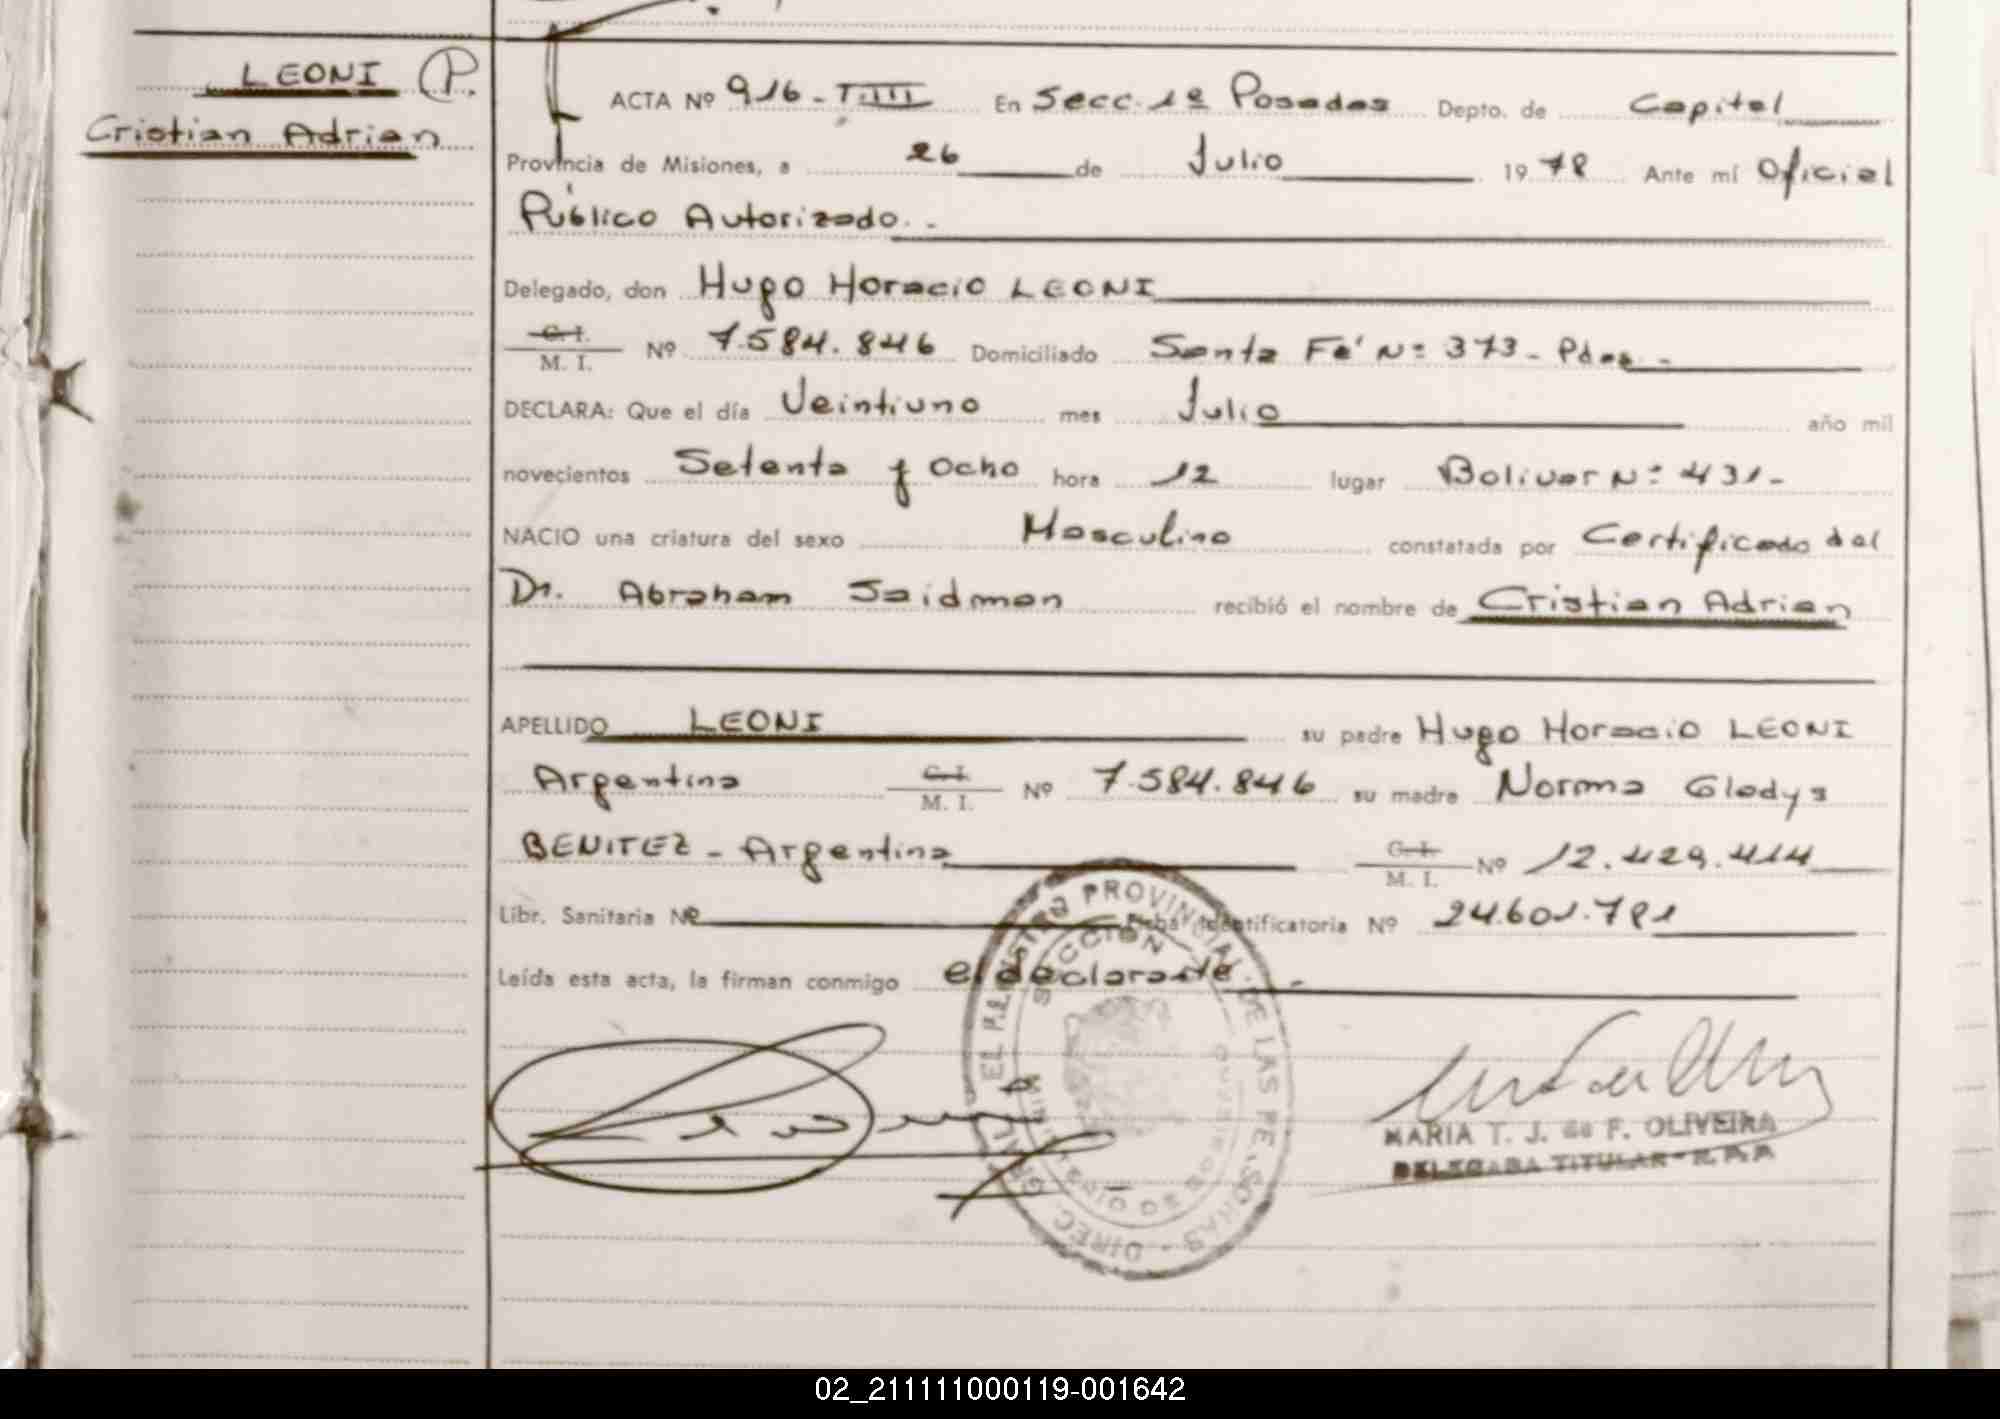 LEONI (P.
Cristian Adrian
ACTA Nº 916 - T. IIII En Secc. 1ª Posadas Depto. de Capital
Provincia de Misiones, a 26 de Julio 1978 Ante mí Oficial
Público Autorizado. -
Delegado, don Hugo Horacio LEONI
C. I.
M. I. Nº 7.584.846 Domiciliado Santa Fé Nº 373 - Pdas. -
DECLARA: Que el día Veintiuno mes Julio año mil
novecientos Setenta y Ocho hora 12 lugar Bolivar Nº 431 -
NACIO una criatura del sexo Masculino constatada por Certificado del
Dr. Abraham Saidman recibió el nombre de Cristian Adrian
APELLIDO LEONI su padre Hugo Horacio LEONI
Argentino C. I.
M. I. Nº 7.584.846 su madre Norma Gladys
BENITEZ - Argentina C. I.
M. I. Nº 12.429.414
Libr. Sanitaria Nº Ficha Identificatoria Nº 24.601.781
Leída esta acta, la firman conmigo el declarante. -
PROVINCIAL DE LAS PERSONAS - DIREC. GRAL.
SECCION
MINISTERIO DE GOBIERNO
MARIA T. J. de F. OLIVEIRA
DELEGADA TITULAR - R.P.P.
02_211111000119-001642